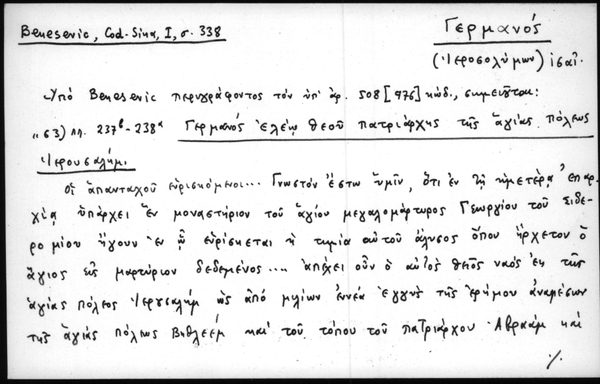 Benesevic, Cod. Sina, I, σ. 338
Γερμανός
(Ἱεροσολύμων) ἰσαΐ.
Ὑπὸ Benesevic περιγράφοντος τὸν ὑπ' ἀρ. 508 [976] κώδ., σημειοῦται:
"63) ππ. 237β-238α Γερμανός ἐλέῳ θεοῦ πατριάρχης τῆς ἁγίας πόλεως
Ἱερουσαλήμ.
Οἱ ἁπανταχοῦ εὑρισκόμενοι... Γνωστὸν ἔστω ὑμῖν, ὅτι ἐν τῇ ἡμετέρᾳ ἐπαρ-
χίᾳ ὑπάρχει ἓν μοναστήριον τοῦ ἁγίου μεγαλομάρτυρος Γεωργίου τοῦ Σιδε-
ρομίου ἤγουν ἐν ᾧ εὑρίσκεται ἡ τιμία αὐτοῦ ἅλυσος ὅπου ἤρχετον ὁ
ἅγιος εἰς μαρτύριον δεδεμένος.... ἀπέχει οὖν ὁ αὐτὸς θεῖος ναὸς ἐκ τῆς
ἁγίας πόλεος Ἱερουσαλὴμ ὡς ἀπὸ μιλίων ἐννέα ἐγγὺς τῆς ἐρήμου ἀναμέσων
τῆς ἁγίας πόλεως Βηθλεὲμ καὶ τοῦ τόπου τοῦ πατριάρχου Ἀβραὰμ καὶ
./.